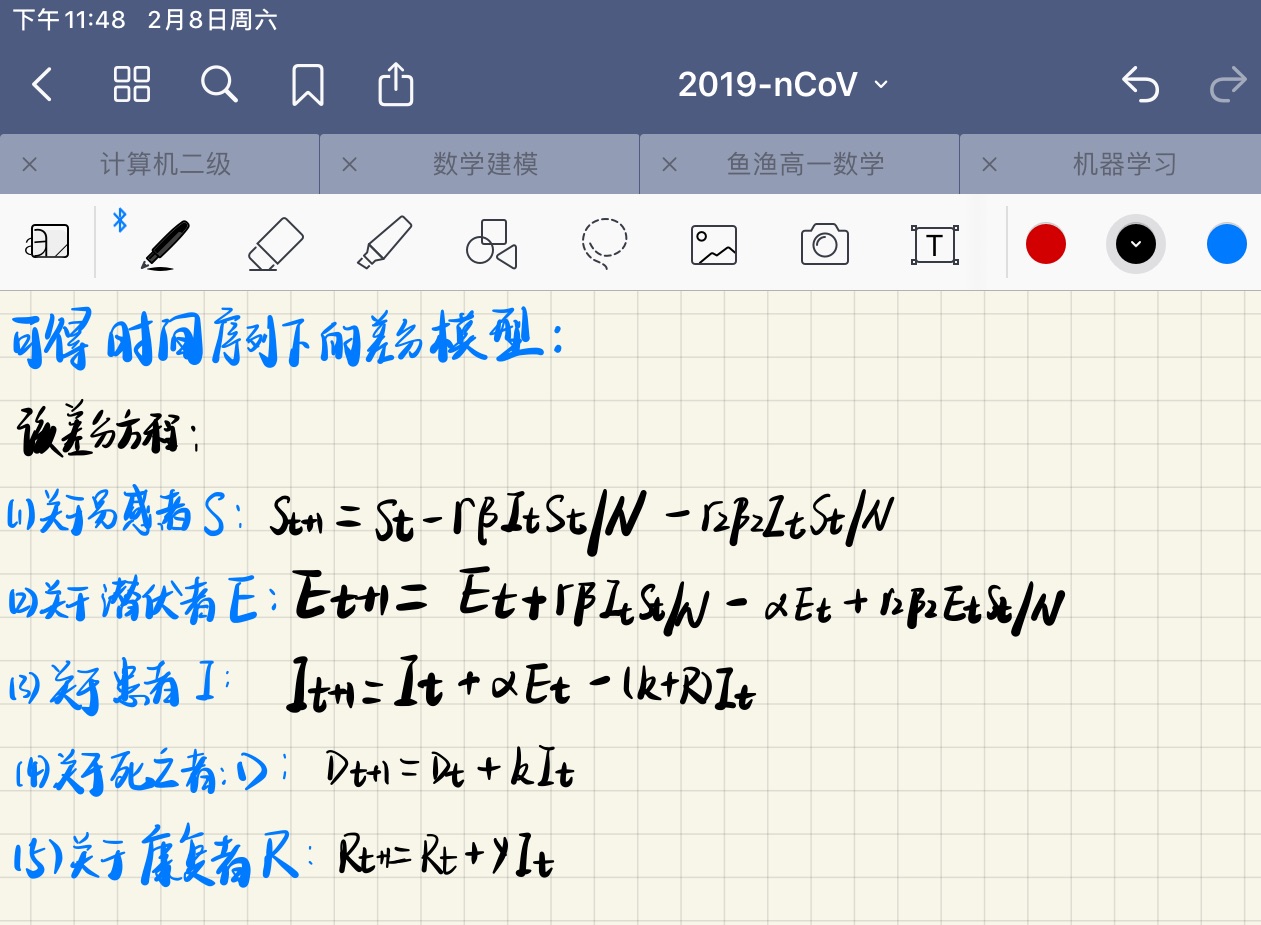 下午11:48 2月8日周六
2019-nCoV
计算机二级 数学建模 鱼渔高一数学 机器学习
a T
可得时间序列下的差分模型：
该差分方程：
(1)关于易感者S： St+1 = St - rβItSt/N - r2β2ItSt/N
(2)关于潜伏者E： Et+1 = Et + rβItSt/N - αEt + r2β2EtSt/N
(3)关于患者I： It+1 = It + αEt - (k+R)It
(4)关于死亡者：D： Dt+1 = Dt + kIt
(5)关于康复者R： Rt+1 = Rt + γIt